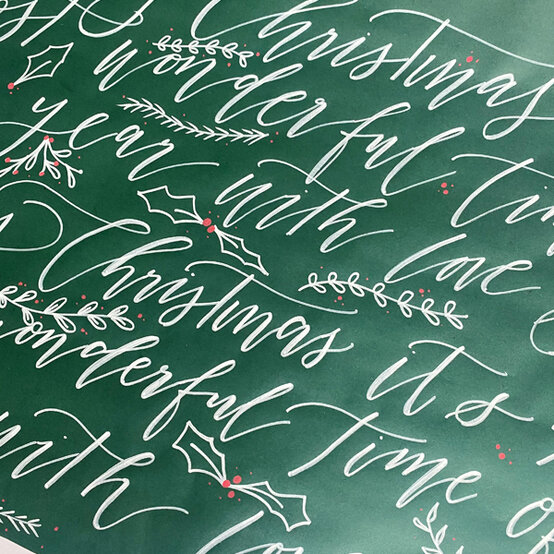 Christmas
wonderful
year with love
Christmas it's
wonderful time of
with